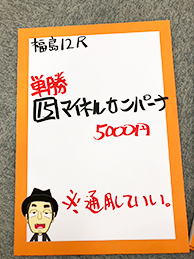 福島12R
単勝
15マイネルカンパーナ
5000円
※通用していい。